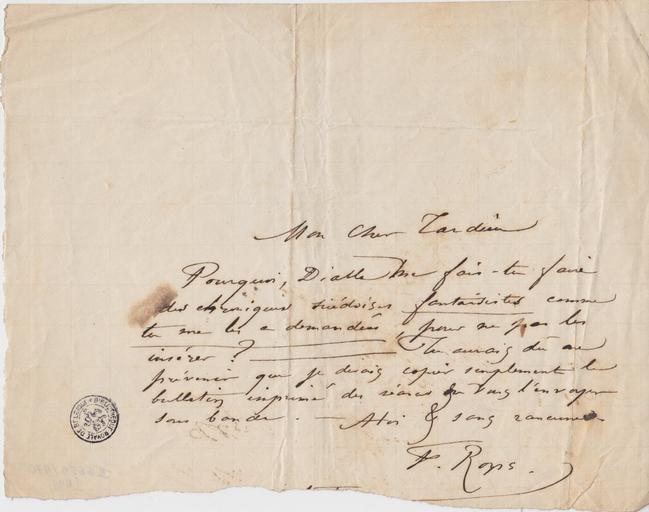 Mon Cher Tardieu
Pourquoi, Diable me fais-tu faire
des chroniques suédoises fantaisistes comme
tu me les a demandées, pour ne pas les
insérer ? Tu aurais dû me
prévenir que je devais copier simplement le
bulletin imprimé des et l'envoyer
sous bande. — A toi & sans rancune
F. Rops.
BIBLIOTHEQUE ROYALE DE BELGIQUE